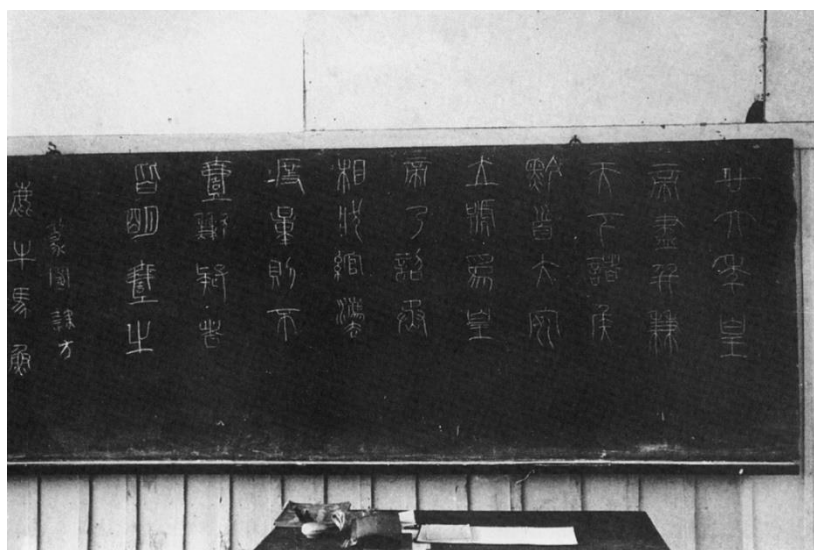 廿六年皇
帝盡并兼
天下諸侯
黔首大安
立號為皇
帝乃詔丞
相狀綰灋
度量則不
壹歉疑者
皆明壹之
篆圓隸方
鹿牛馬魚